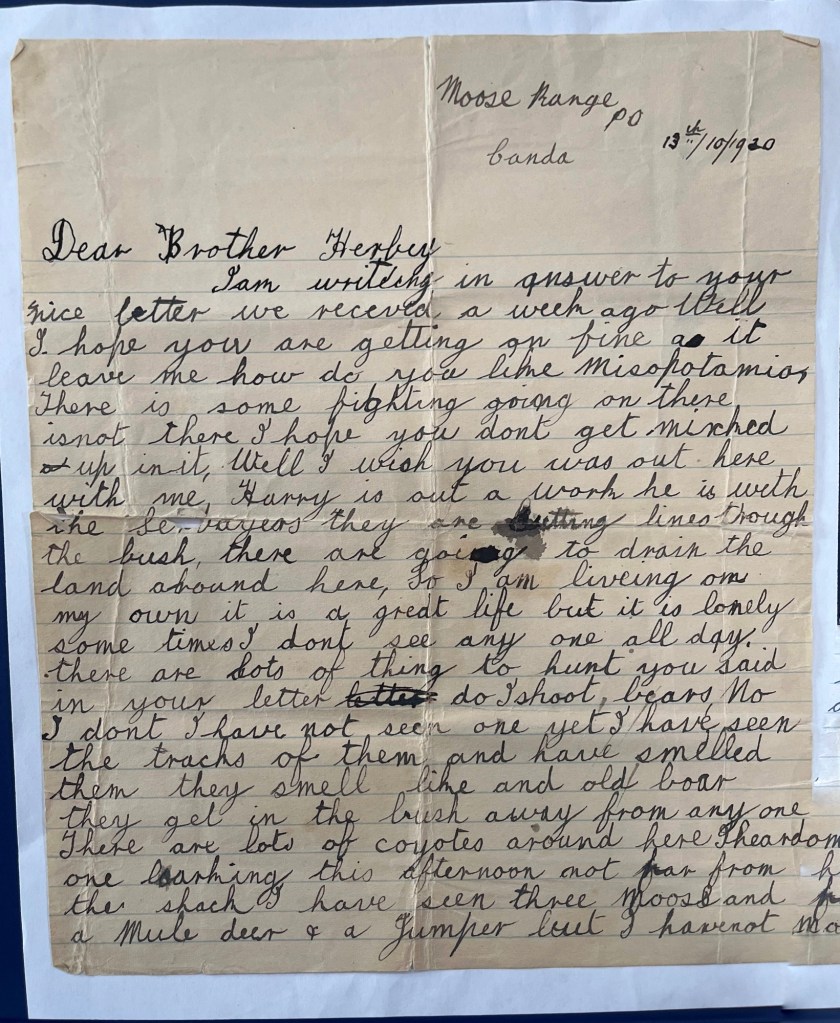 Moose Range
PO
13th/10/1920
Canda
Dear Brother Herbey
I am writeing in answer to your
nice letter we receved a week ago Well
I hope you are getting on fine as it
leave me how do you like Misopotamia,
There is some fighting going on there
isnot there I hope you dont get mixhed
up in it, Well I wish you was out here
with me, Harry is out a work he is with
the Servayers they are cutting lines through
the bush, there are going to drain the
land around here, So I am liveing on
my own it is a great life but it is lonely
some times I dont see any one all day.
there are lots of thing to hunt you said
in your letter letter do I shoot, bears, No
I dont I have not seen one yet I have seen
the tracks of them and have smelled
them they smell like and old boar
they get in the bush away from any one
There are lots of coyotes around here I heard
one barking this afternoon not far from
the shack I have seen three Moose and
a Mule deer & a Jumper but I havenot